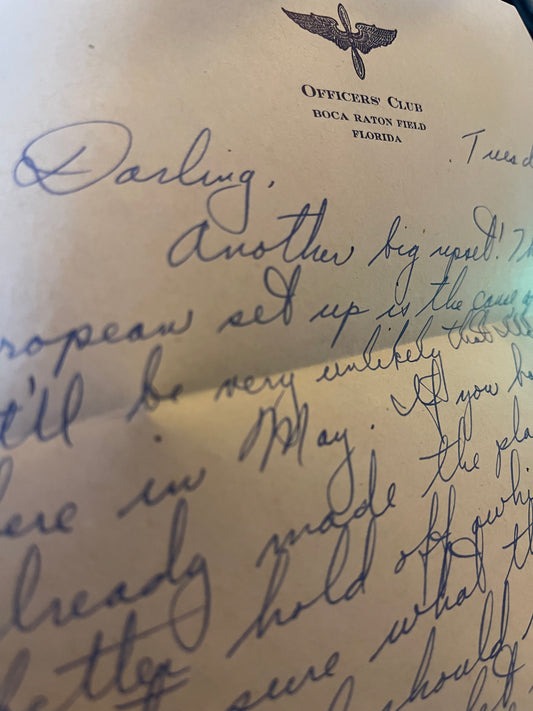 OFFICERS' CLUB
BOCA RATON FIELD
FLORIDA
Tuesd
Darling,
Another big upset! Th
ropean set up is the cause
t'll be very unlikely that
here in May. If you ha
lready made the pla
better hold off awhi
sure what th
should